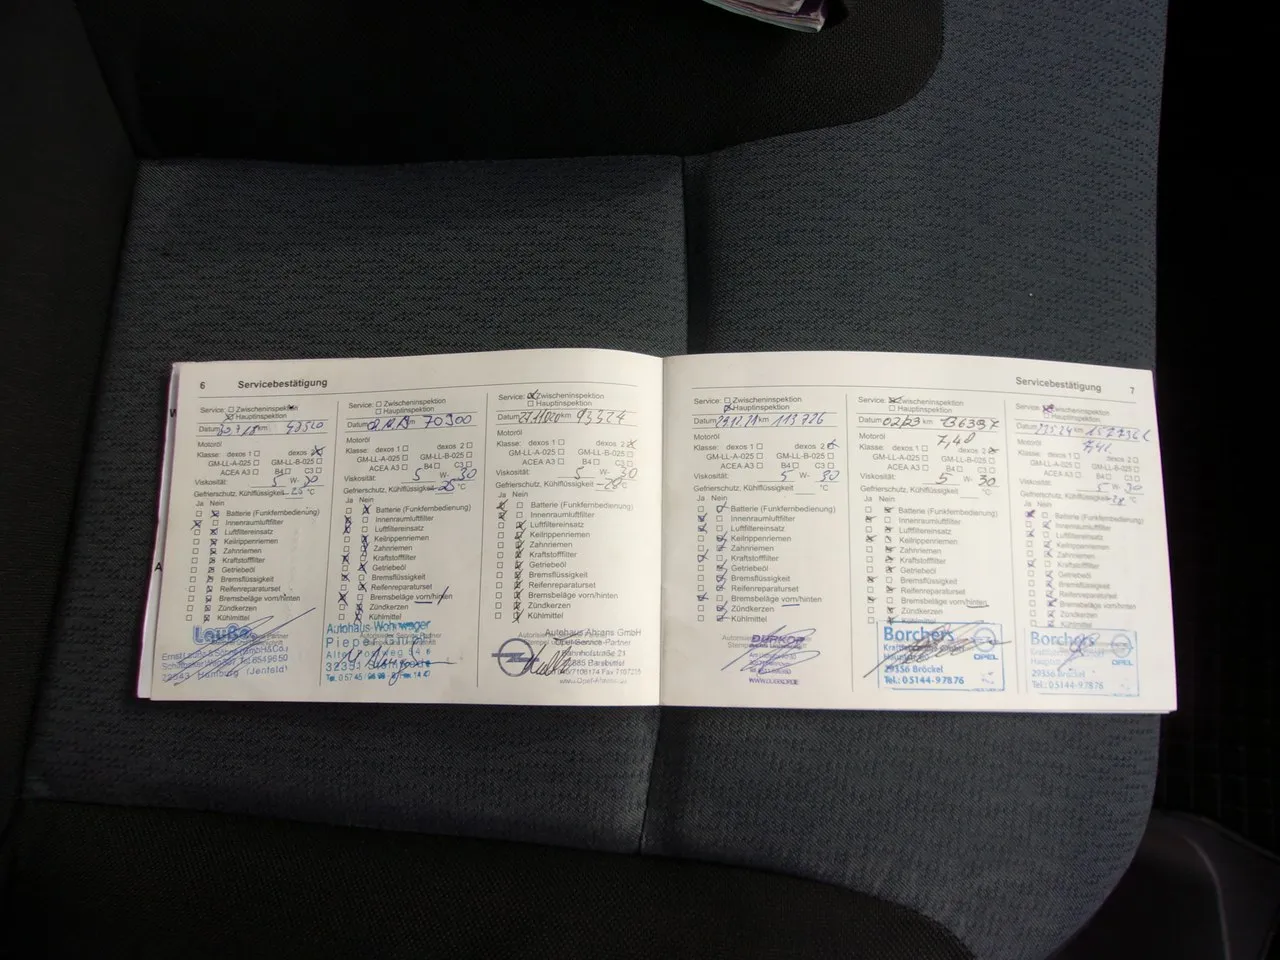 6 Servicebestätigung
Service: Zwischeninspektion
Hauptinspektion
Datum km
Motoröl
Klasse: dexos 1 dexos 2
GM-LL-A-025 GM-LL-B-025
ACEA A3 B4 C3
Viskosität: 5 W- 30
Gefrierschutz, Kühlflüssigkeit -25 °C
Ja Nein
Batterie (Funkfernbedienung)
Innenraumluftfilter
Luftfiltereinsatz
Keilrippenriemen
Zahnriemen
Kraftstofffilter
Getriebeöl
Bremsflüssigkeit
Reifenreparaturset
Bremsbeläge vorn/hinten
Zündkerzen
Kühlmittel
Hamburg (Jenfeld)
Service: Zwischeninspektion
Hauptinspektion
Datum km 70300
Motoröl
Klasse: dexos 1 dexos 2
GM-LL-A-025 GM-LL-B-025
ACEA A3 B4 C3
Viskosität: 5 W- 30
Gefrierschutz, Kühlflüssigkeit -25 °C
Ja Nein
Batterie (Funkfernbedienung)
Innenraumluftfilter
Luftfiltereinsatz
Keilrippenriemen
Zahnriemen
Kraftstofffilter
Getriebeöl
Bremsflüssigkeit
Reifenreparaturset
Bremsbeläge vorn/hinten
Zündkerzen
Kühlmittel
Autohaus
Service: Zwischeninspektion
Hauptinspektion
Datum km 93324
Motoröl
Klasse: dexos 1 dexos 2
GM-LL-A-025 GM-LL-B-025
ACEA A3 B4 C3
Viskosität: 5 W- 30
Gefrierschutz, Kühlflüssigkeit -28 °C
Ja Nein
Batterie (Funkfernbedienung)
Innenraumluftfilter
Luftfiltereinsatz
Keilrippenriemen
Zahnriemen
Kraftstofffilter
Getriebeöl
Bremsflüssigkeit
Reifenreparaturset
Bremsbeläge vorn/hinten
Zündkerzen
Kühlmittel
Autohaus Ahrens GmbH
Opel-Service-Partner
Bahnhofstraße 21
Servicebestätigung 7
Service: Zwischeninspektion
Hauptinspektion
Datum km 113726
Motoröl
Klasse: dexos 1 dexos 2
GM-LL-A-025 GM-LL-B-025
ACEA A3 B4 C3
Viskosität: 5 W- 30
Gefrierschutz, Kühlflüssigkeit °C
Ja Nein
Batterie (Funkfernbedienung)
Innenraumluftfilter
Luftfiltereinsatz
Keilrippenriemen
Zahnriemen
Kraftstofffilter
Getriebeöl
Bremsflüssigkeit
Reifenreparaturset
Bremsbeläge vorn/hinten
Zündkerzen
Kühlmittel
DÜRKOP
Service: Zwischeninspektion
Hauptinspektion
Datum 02/23 km 136397
Motoröl 7,4l
Klasse: dexos 1 dexos 2
GM-LL-A-025 GM-LL-B-025
ACEA A3 B4 C3
Viskosität: 5 W- 30
Gefrierschutz, Kühlflüssigkeit °C
Ja Nein
Batterie (Funkfernbedienung)
Innenraumluftfilter
Luftfiltereinsatz
Keilrippenriemen
Zahnriemen
Kraftstofffilter
Getriebeöl
Bremsflüssigkeit
Reifenreparaturset
Bremsbeläge vorn/hinten
Zündkerzen
Kühlmittel
Borchers
OPEL
29356 Bröckel
Tel.: 05144-97876
Service: Zwischeninspektion
Hauptinspektion
Datum km
Motoröl 7,4l
Klasse: dexos 1 dexos 2
GM-LL-A-025 GM-LL-B-025
ACEA A3 B4 C3
Viskosität: 5 W- 30
Gefrierschutz, Kühlflüssigkeit °C
Ja Nein
Batterie (Funkfernbedienung)
Innenraumluftfilter
Luftfiltereinsatz
Keilrippenriemen
Zahnriemen
Kraftstofffilter
Getriebeöl
Bremsflüssigkeit
Reifenreparaturset
Bremsbeläge vorn/hinten
Zündkerzen
Kühlmittel
Borchers
OPEL
29356 Bröckel
Tel.: 05144-97876